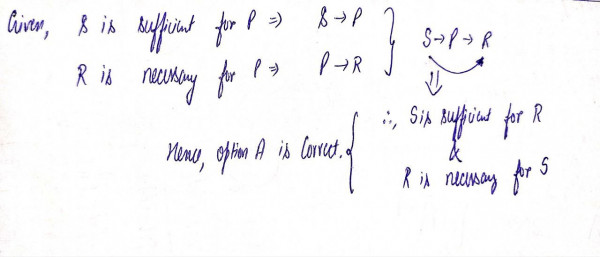 Given, S is sufficient for P ⇒ S → P
R is necessary for P ⇒ P → R
S → P → R
⇓
∴, S is sufficient for R
&
R is necessary for S
Hence, option A is correct.